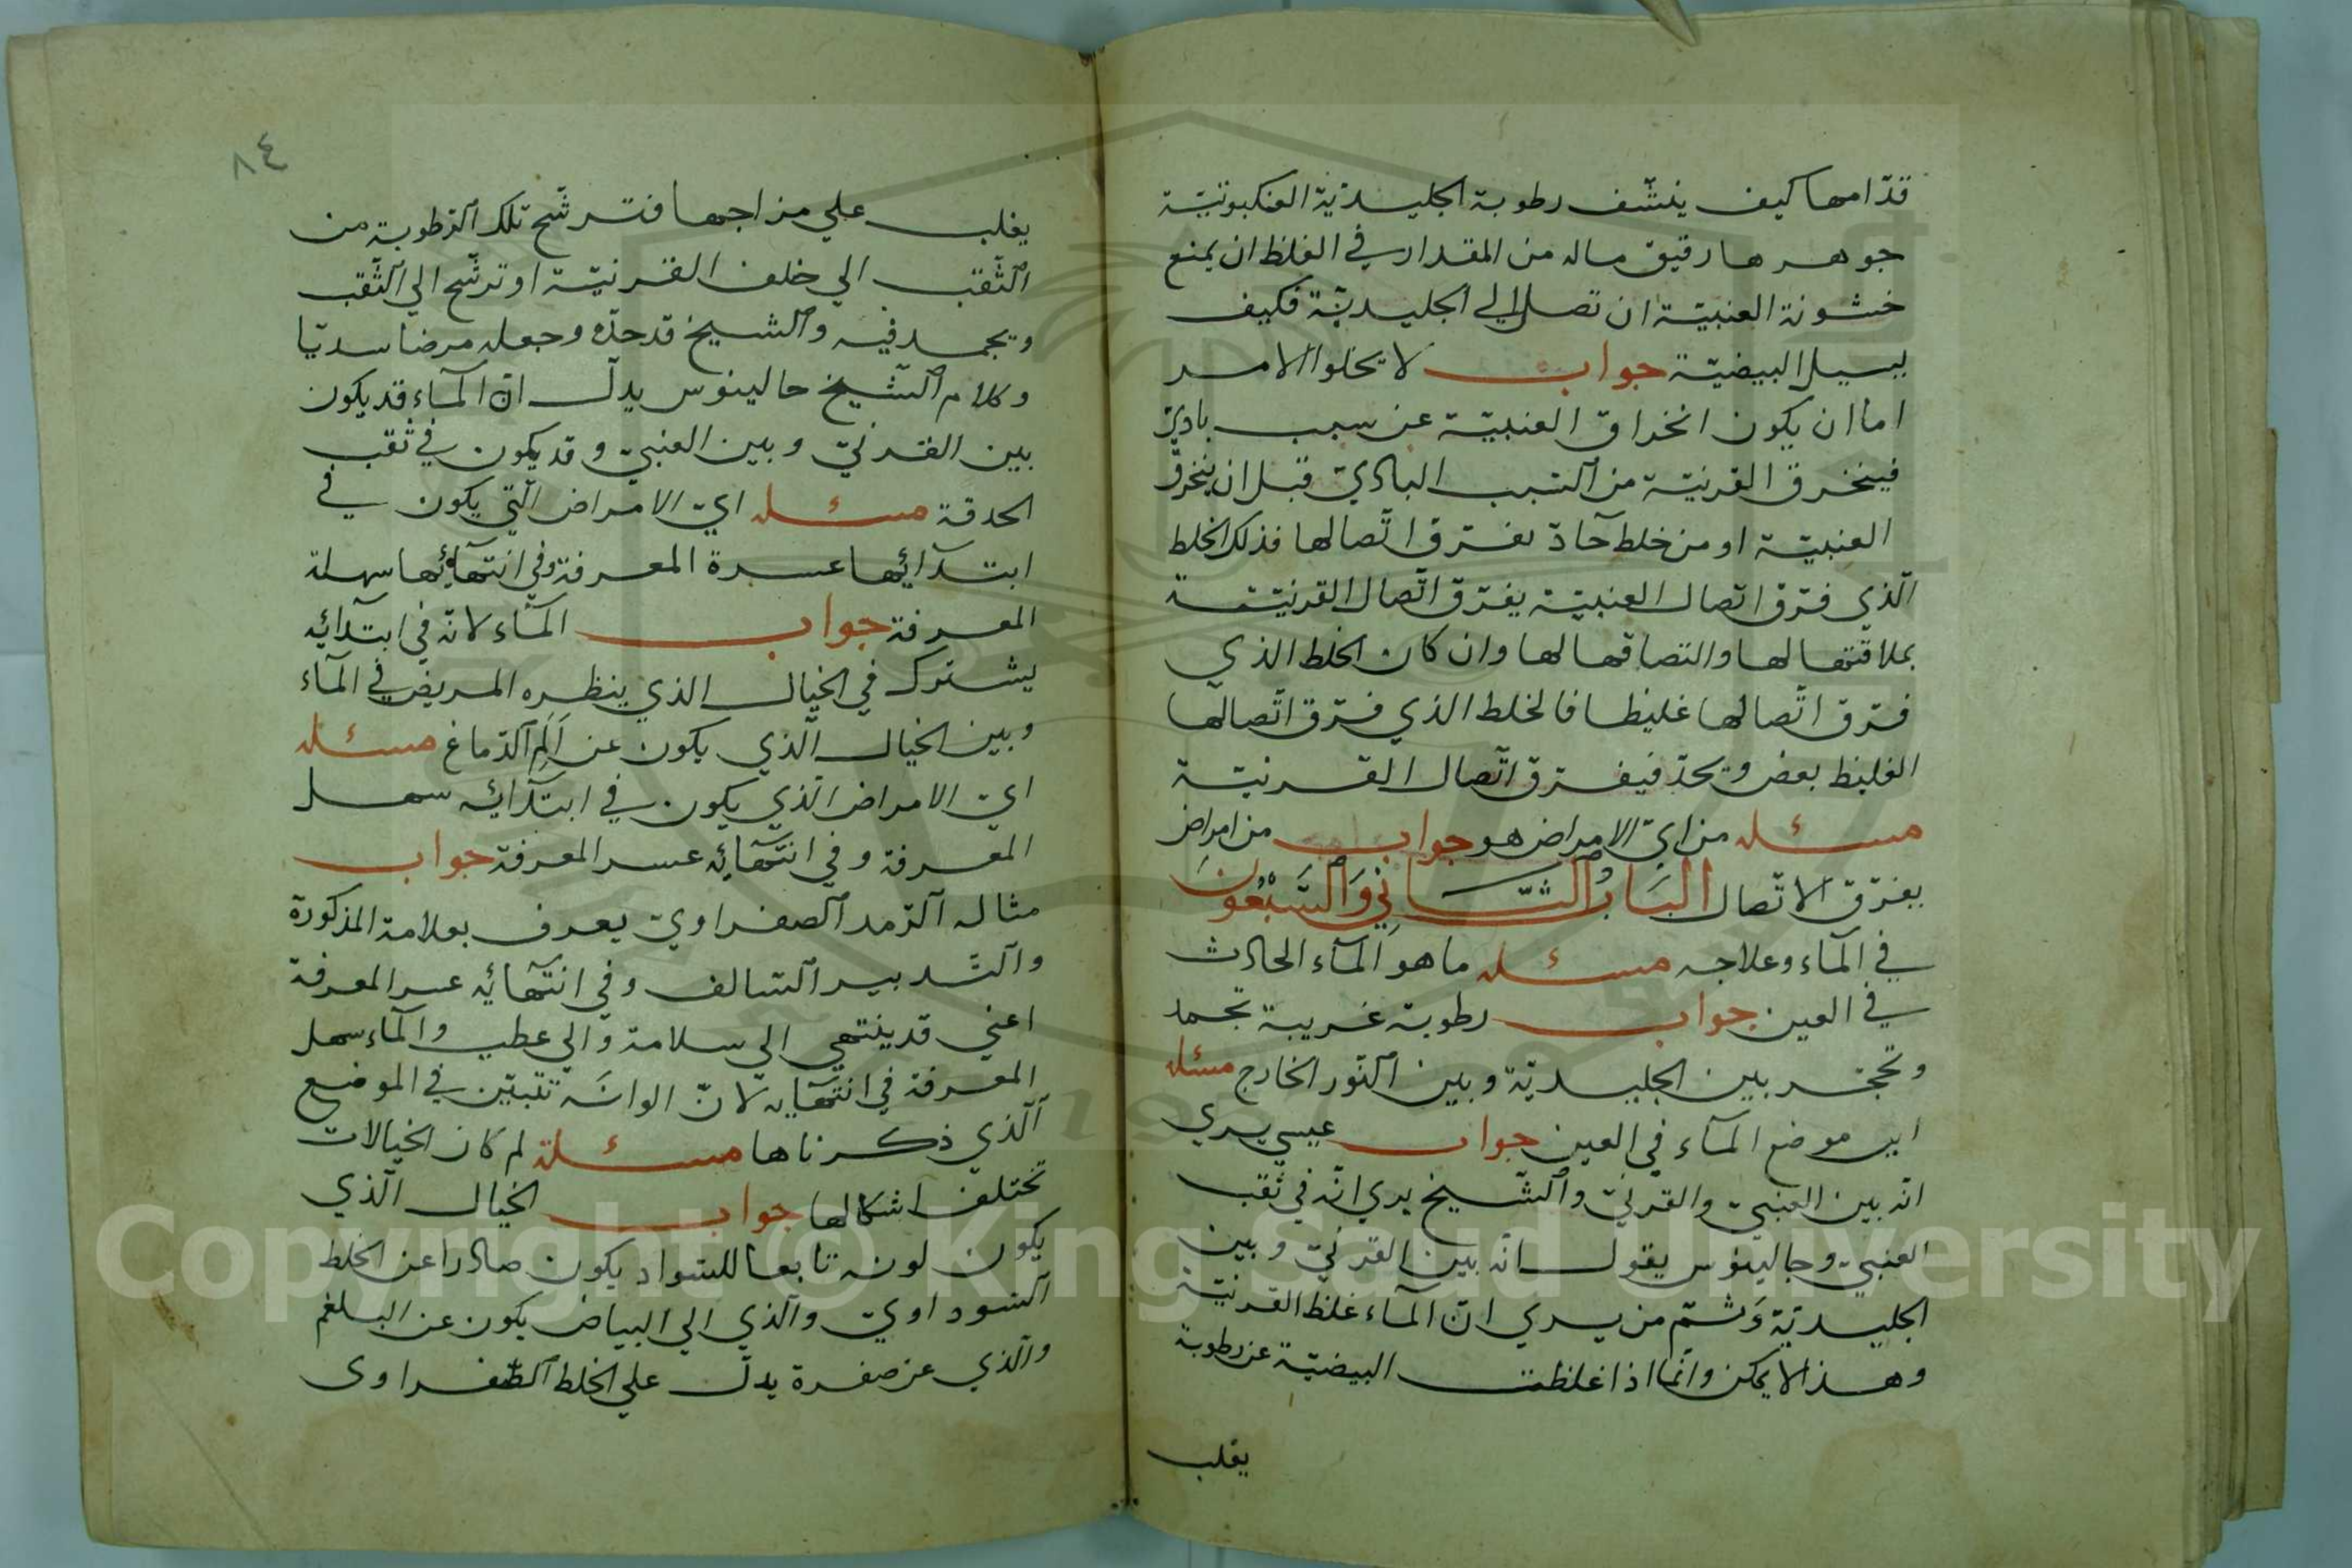 قدّامها كيف ينشّف رطوبة الجليديّة العنكبوتيّة
جوهرها رقيق ماله من المقدار في الغلظ ان يمنع
خشونة العنبيّة ان تصل الي الجليديّة فكيف
يسيل البيضيّة جواب لا يخلوا الامر
اما ان يكون انخراق العنبيّة عن سبب باديّ
فينخرق القرنيّة من السّبب الباديّ قبل ان ينخرق
العنبيّة او من خلط حآدّ يفرّق اتّصالها فذلك الخلط
الّذي فرّق اتصال العنبيّة يفرّق اتّصال القرنيّة
بملاقتها لها والتصاقها لها وان كان الخلط الذي
فرّق اتّصالها غليظا فالخلط الذي فرّق اتّصالها
الغليظ بعض ويحدّ فيفرق اتّصال القرنيّة
مسئله من ايّ الامراض هو جواب من امراض
يفرّق الاتّصال البَابُ الثّانِي وَالسَّبْعُونَ
في المآء وعلاجه مسئله ما هو المآء الحادث
في العين جواب رطوبة غريبة تجمد
وتحجز بين الجليديّة وبين النّور الخارج مسئله
اين موضع المآء في العين جواب عيسي يري
انّه بين العنبيّ والقرنيّ والشّيخ يري انّه في ثقب
العنبيّ وجالينوس يقول انّه بين القرنيّ وبين
الجليديّة وَثمّ من يري انّ المآء غلظ القرنيّة
وهذا لا يمكن وانّما اذا غلظت البيضيّة عن رطوبة
يغلب
٨٤
يغلب علي مزاجها فترشّح تلك الرّطوبة من
الثّقب الي خلف القرنيّة او ترشّح الي الثّقب
ويجمد فيه والشيخ قد حدّه وجعله مرضا سديّا
وكلام الشّيخ جالينوس يدلّ انّ المآء قد يكون
بين القرنيّ وبين العنبيّ وقد يكون في ثقب
الحدقة مسئله ايّ الامراض الّتي يكون في
ابتدآئها عسرة المعرفة وفي انتهآئها سهلة
المعرفة جواب المآء لانّه في ابتدآئه
يشترك في الخيال الذي ينظره المريض في المآء
وبين الخيال الّذي يكون عن اَلَم الدّماغ مسئله
ايّ الامراض الّذي يكون في ابتدآئه سهل
المعرفة وفي انتهآئه عسر المعرفة جواب
مثاله الرّمد الصفراويّ يعرف بعلامة المذكورة
والتّدبير السّالف وفي انتهآئه عسر المعرفة
اعني قد ينتهي الي سلامة والي عطب والمآء سهل
المعرفة في انتهآيه لانّ الوانَه تتبيّن في الموضع
الّذي ذكرناها مسئلة لم كان الخيالات
تختلف اشكالها جواب الخيال الّذي
يكون لونه تابعا للسّواد يكون صادرا عن الخلط
السّوداويّ والذي الي البياض يكون عن البلغم
والذي عن صفرة يدلّ علي الخلط الصّفراوى